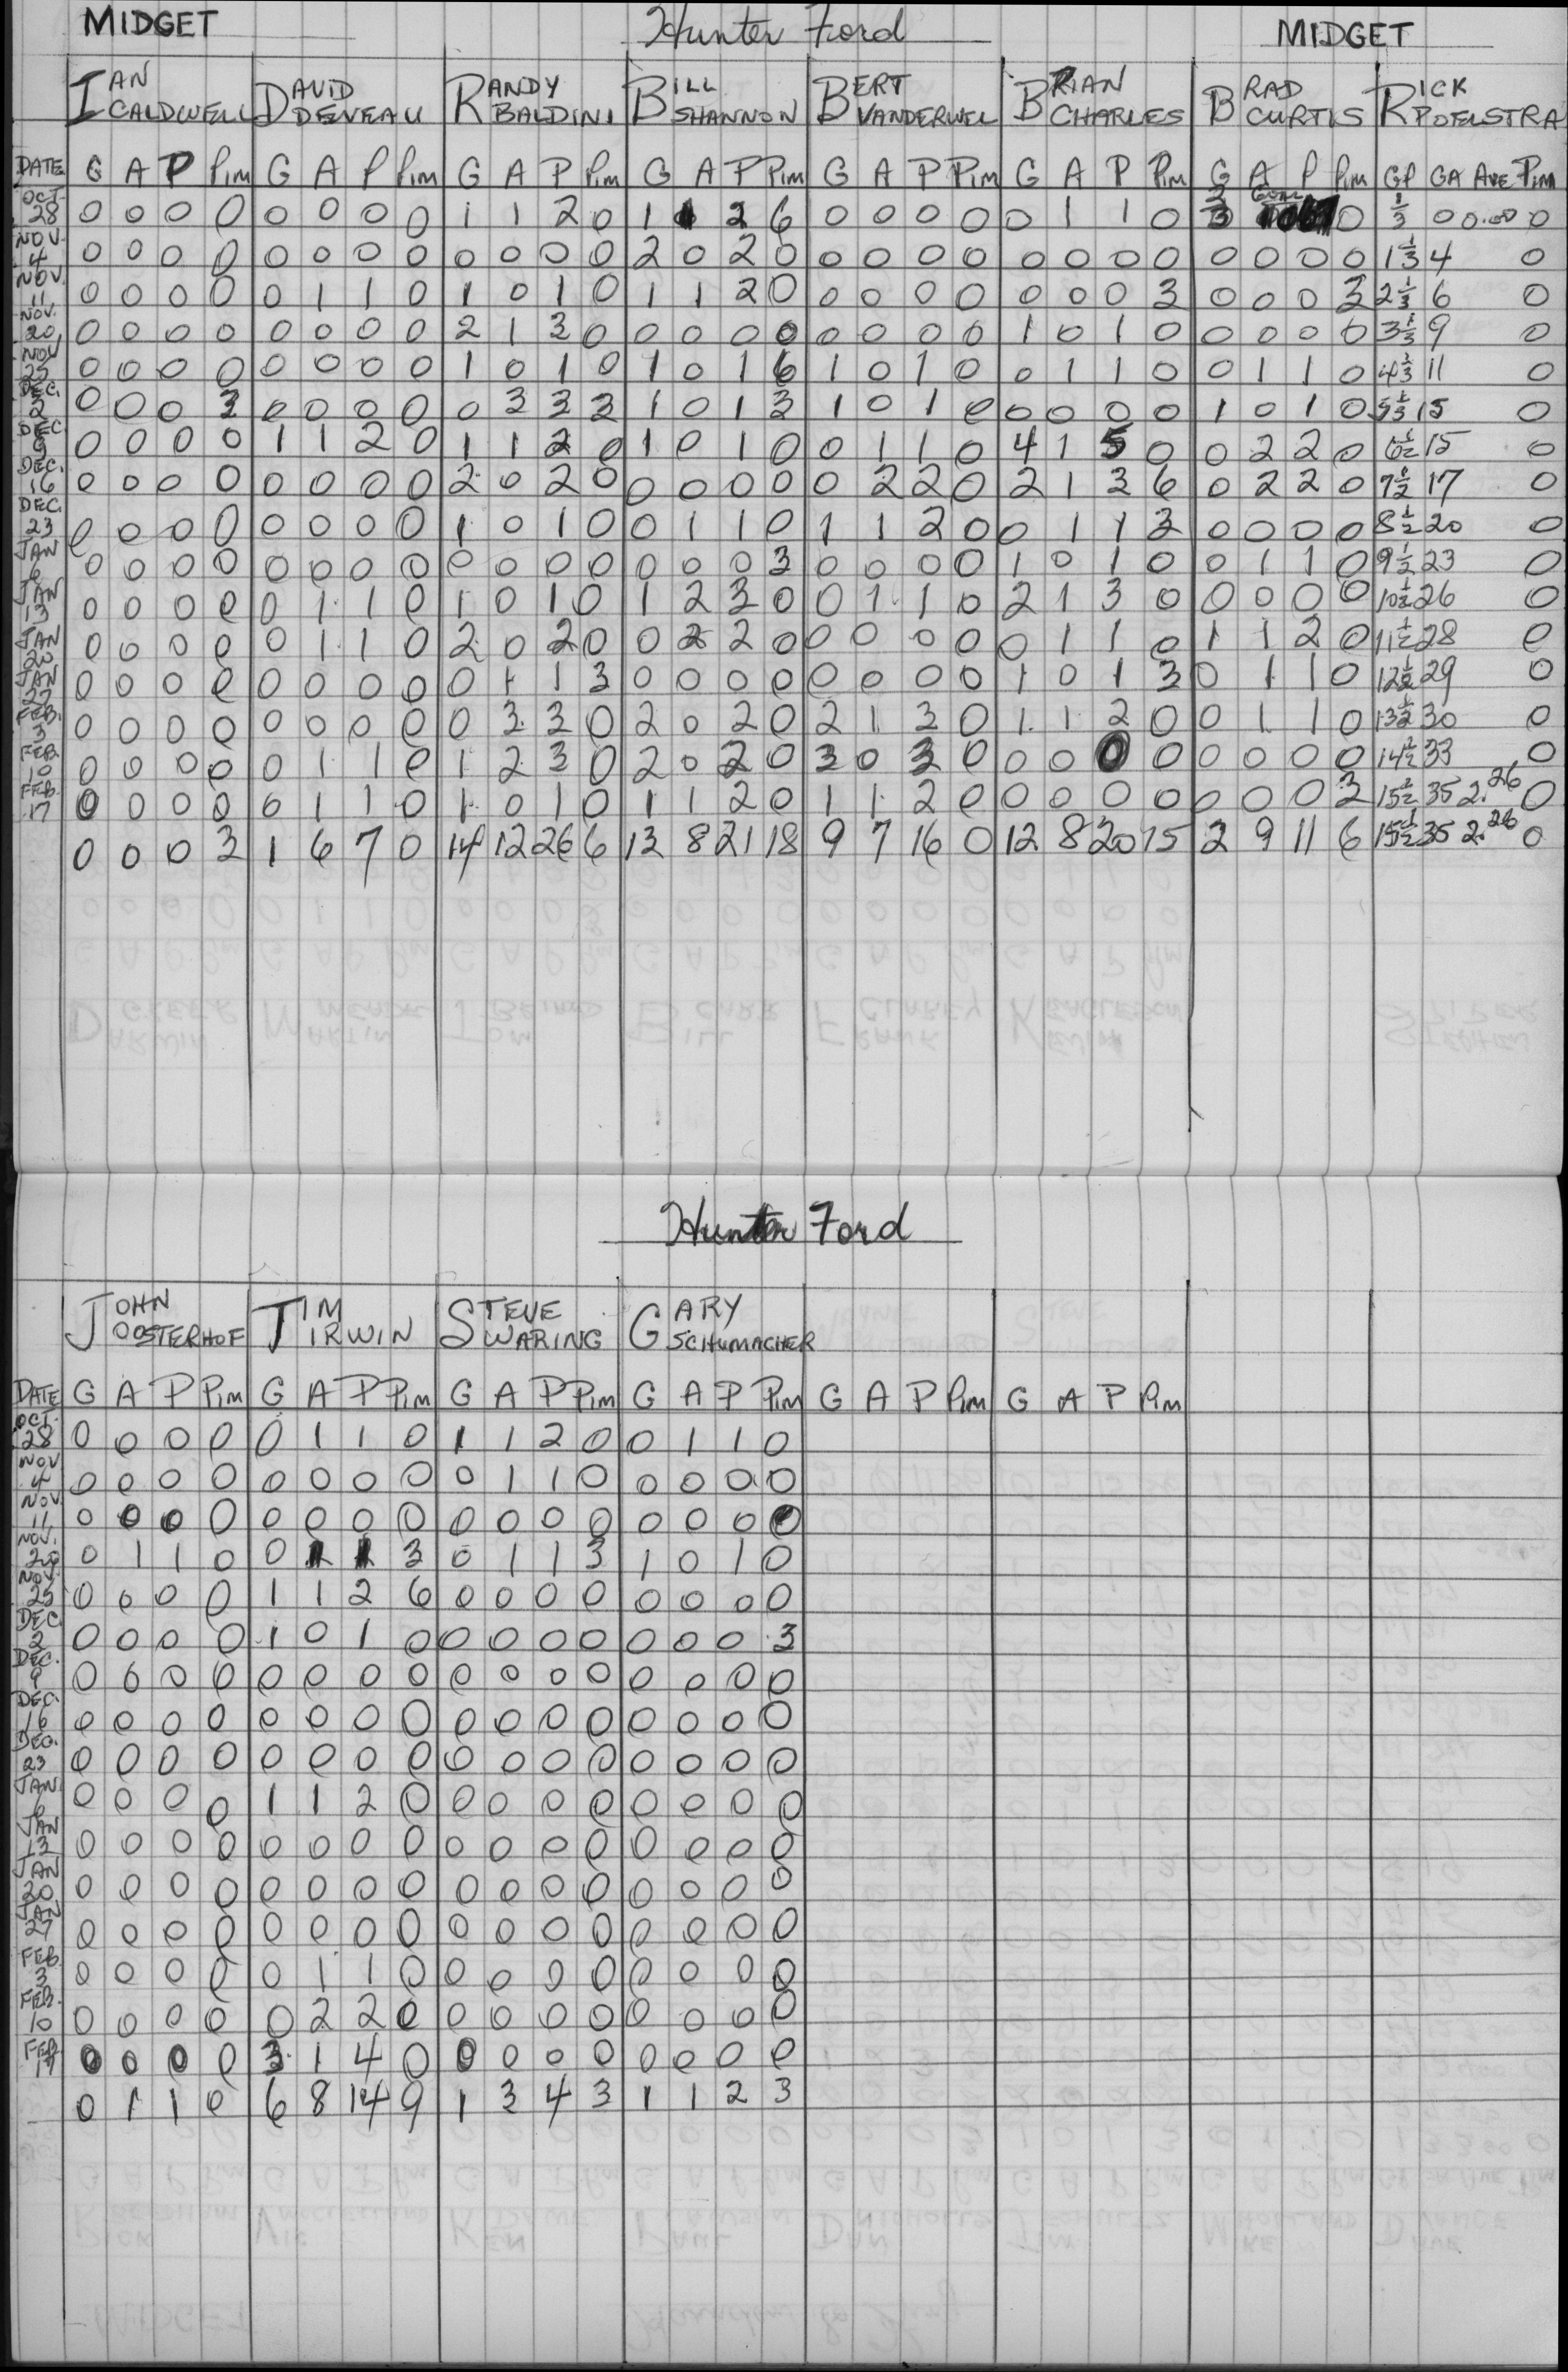 MIDGET Hunter Ford MIDGET
IAN CALDWELL DAVID DEVEAU RANDY BALDINI BILL SHANNON BERT VANDERWEL BRIAN CHARLES BRAD CURTIS RICK POELSTRA
DATE G A P Pim G A P Pim G A P Pim G A P Pim G A P Pim G A P Pim G A P Pim GP GA AVE Pim
OCT. 28 0 0 0 0 0 0 0 0 1 1 2 0 1 1 2 6 0 0 0 0 0 1 1 0 0 0 0.00 0
NOV. 4 0 0 0 0 0 0 0 0 0 0 0 0 2 0 2 0 0 0 0 0 0 0 0 0 0 0 0 0 1 1/3 4 0
NOV. 11 0 0 0 0 0 1 1 0 1 0 1 0 1 1 2 0 0 0 0 0 0 0 0 3 0 0 0 3 2 1/3 6 0
NOV. 20 0 0 0 0 0 0 0 0 2 1 3 0 0 0 0 0 0 0 0 0 1 0 1 0 0 0 0 0 3 1/3 9 0
NOV 25 0 0 0 0 0 0 0 0 1 0 1 0 1 0 1 6 1 0 1 0 0 1 1 0 0 1 1 0 4 1/3 11 0
DEC. 2 0 0 0 3 0 0 0 0 0 3 3 3 1 0 1 3 1 0 1 0 0 0 0 0 1 0 1 0 5 1/3 15 0
DEC 9 0 0 0 0 1 1 2 0 1 1 2 0 1 0 1 0 0 1 1 0 4 1 5 0 0 2 2 0 6 1/2 15 0
DEC. 16 0 0 0 0 0 0 0 0 2 0 2 0 0 0 0 0 0 2 2 0 2 1 3 6 0 2 2 0 7 1/2 17 0
DEC. 23 0 0 0 0 0 0 0 0 1 0 1 0 0 1 1 0 1 1 2 0 0 1 1 3 0 0 0 0 8 1/2 20 0
JAN 6 0 0 0 0 0 0 0 0 0 0 0 0 0 0 0 3 0 0 0 0 1 0 1 0 0 1 1 0 9 1/2 23 0
JAN 13 0 0 0 0 0 1 1 0 1 0 1 0 1 2 3 0 0 1 1 0 2 1 3 0 0 0 0 0 10 1/2 26 0
JAN 20 0 0 0 0 0 1 1 0 2 0 2 0 0 2 2 0 0 0 0 0 0 1 1 0 1 1 2 0 11 1/2 28 0
JAN 27 0 0 0 0 0 0 0 0 0 1 1 3 0 0 0 0 0 0 0 0 1 0 1 3 0 1 1 0 12 1/2 29 0
FEB. 3 0 0 0 0 0 0 0 0 0 3 3 0 2 0 2 0 2 1 3 0 1 1 2 0 0 1 1 0 13 1/2 30 0
FEB. 10 0 0 0 0 0 1 1 0 1 2 3 0 2 0 2 0 3 0 3 0 0 0 0 0 0 0 0 0 14 1/2 33 0
FEB. 17 0 0 0 0 0 1 1 0 1 0 1 0 1 1 2 0 1 1 2 0 0 0 0 0 0 0 0 3 15 1/2 35 2.26 0
0 0 0 3 1 6 7 0 14 12 26 6 13 8 21 18 9 7 16 0 12 8 20 15 2 9 11 6 15 1/2 35 2.26 0
Hunter Ford
JOHN OOSTERHOF TIM IRWIN STEVE WARING GARY SCHUMACHER
DATE G A P Pim G A P Pim G A P Pim G A P Pim G A P Pim G A P Pim
OCT. 28 0 0 0 0 0 1 1 0 1 1 2 0 0 1 1 0
NOV 4 0 0 0 0 0 0 0 0 0 1 1 0 0 0 0 0
NOV. 11 0 0 0 0 0 0 0 0 0 0 0 0 0 0 0 0
NOV. 20 0 1 1 0 0 1 1 3 0 1 1 3 1 0 1 0
NOV. 25 0 0 0 0 1 1 2 6 0 0 0 0 0 0 0 0
DEC. 2 0 0 0 0 1 0 1 0 0 0 0 0 0 0 0 3
DEC. 9 0 0 0 0 0 0 0 0 0 0 0 0 0 0 0 0
DEC. 16 0 0 0 0 0 0 0 0 0 0 0 0 0 0 0 0
DEC. 23 0 0 0 0 0 0 0 0 0 0 0 0 0 0 0 0
JAN. 6 0 0 0 0 1 1 2 0 0 0 0 0 0 0 0 0
JAN 13 0 0 0 0 0 0 0 0 0 0 0 0 0 0 0 0
JAN 20 0 0 0 0 0 0 0 0 0 0 0 0 0 0 0 0
JAN 27 0 0 0 0 0 0 0 0 0 0 0 0 0 0 0 0
FEB 3 0 0 0 0 0 1 1 0 0 0 0 0 0 0 0 0
FEB. 10 0 0 0 0 0 2 2 0 0 0 0 0 0 0 0 0
FEB 17 0 0 0 0 3 1 4 0 0 0 0 0 0 0 0 0
0 1 1 0 6 8 14 9 1 3 4 3 1 1 2 3